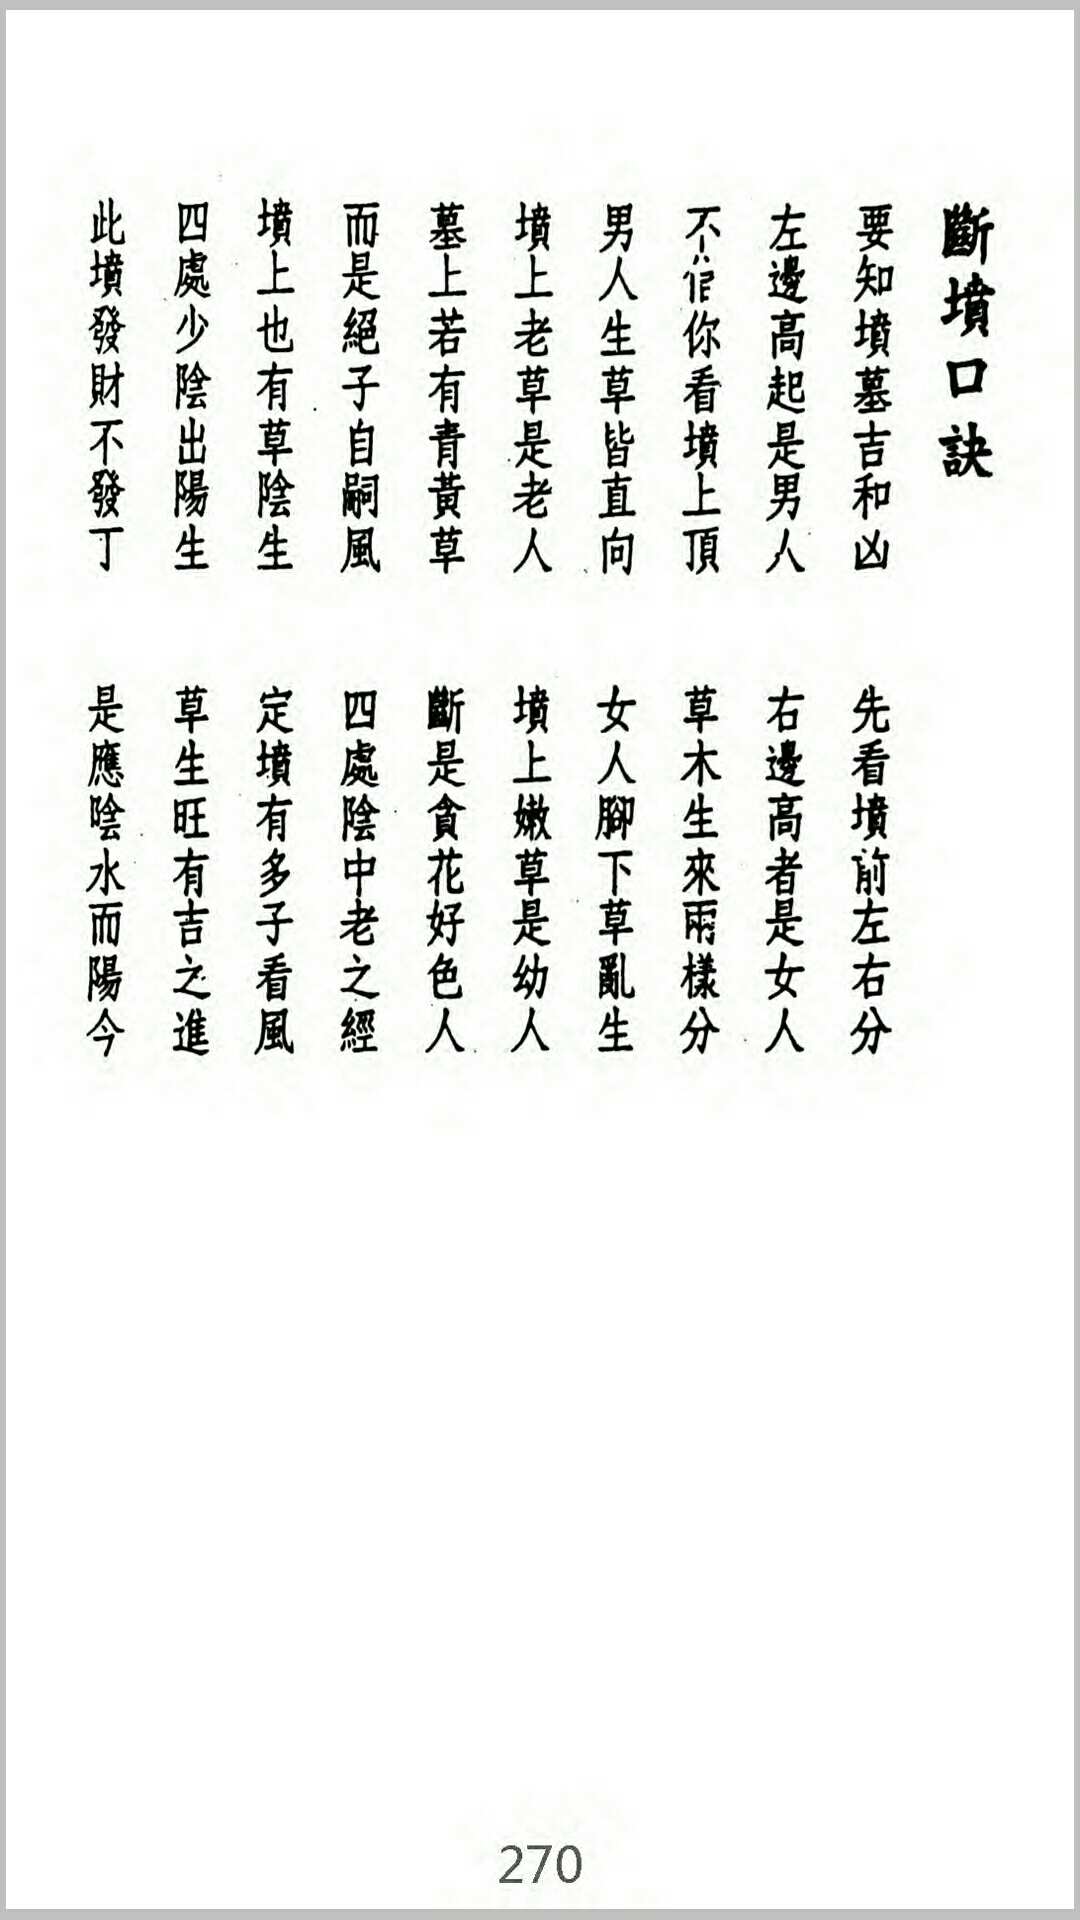 斷墳口訣
要知墳墓吉和凶
先看墳前左右分
左邊高起是男人
右邊高者是女人
不管你看墳上頂
草木生來兩樣分
男人生草皆直向
女人腳下草亂生
墳上老草是老人
墳上嫩草是幼人
墓上若有青黃草
斷是貪花好色人
而是絕子自嗣風
四處陰中老之經
墳上也有草陰生
定墳有多子看風
四處少陰出陽生
草生旺有吉之進
此墳發財不發丁
是應陰水而陽今
270